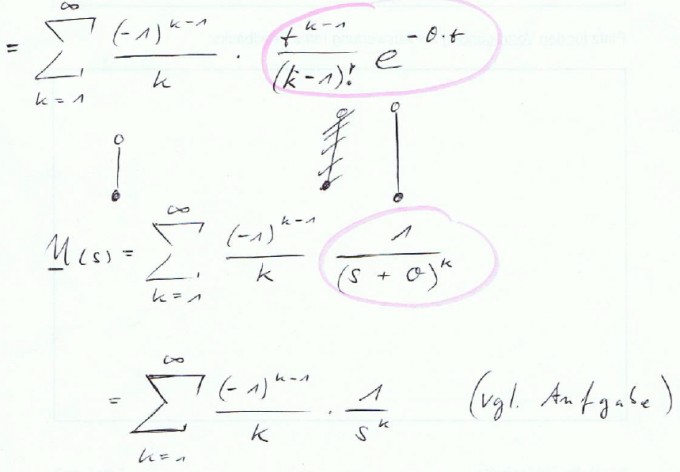 = ∞ ∑ k = 1 (-1)^{k-1} / k · t^{k-1} / (k-1)! e^{-0·t}
U(s) = ∞ ∑ k = 1 (-1)^{k-1} / k 1 / (s + 0)^k
= ∞ ∑ k = 1 (-1)^{k-1} / k · 1 / s^k (vgl. Aufgabe)